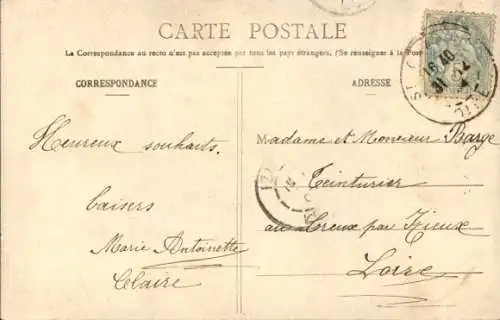 CARTE POSTALE
La Correspondance au recto n'est pas acceptée par tous les pays étrangers. (Se renseigner à la Post
CORRESPONDANCE
ADRESSE
Heureux souhaits.
Baisers
Marie Antoinette
Claire
Madame et Monsieur Barge
Teinturier
au Creux par Izieux
Loire